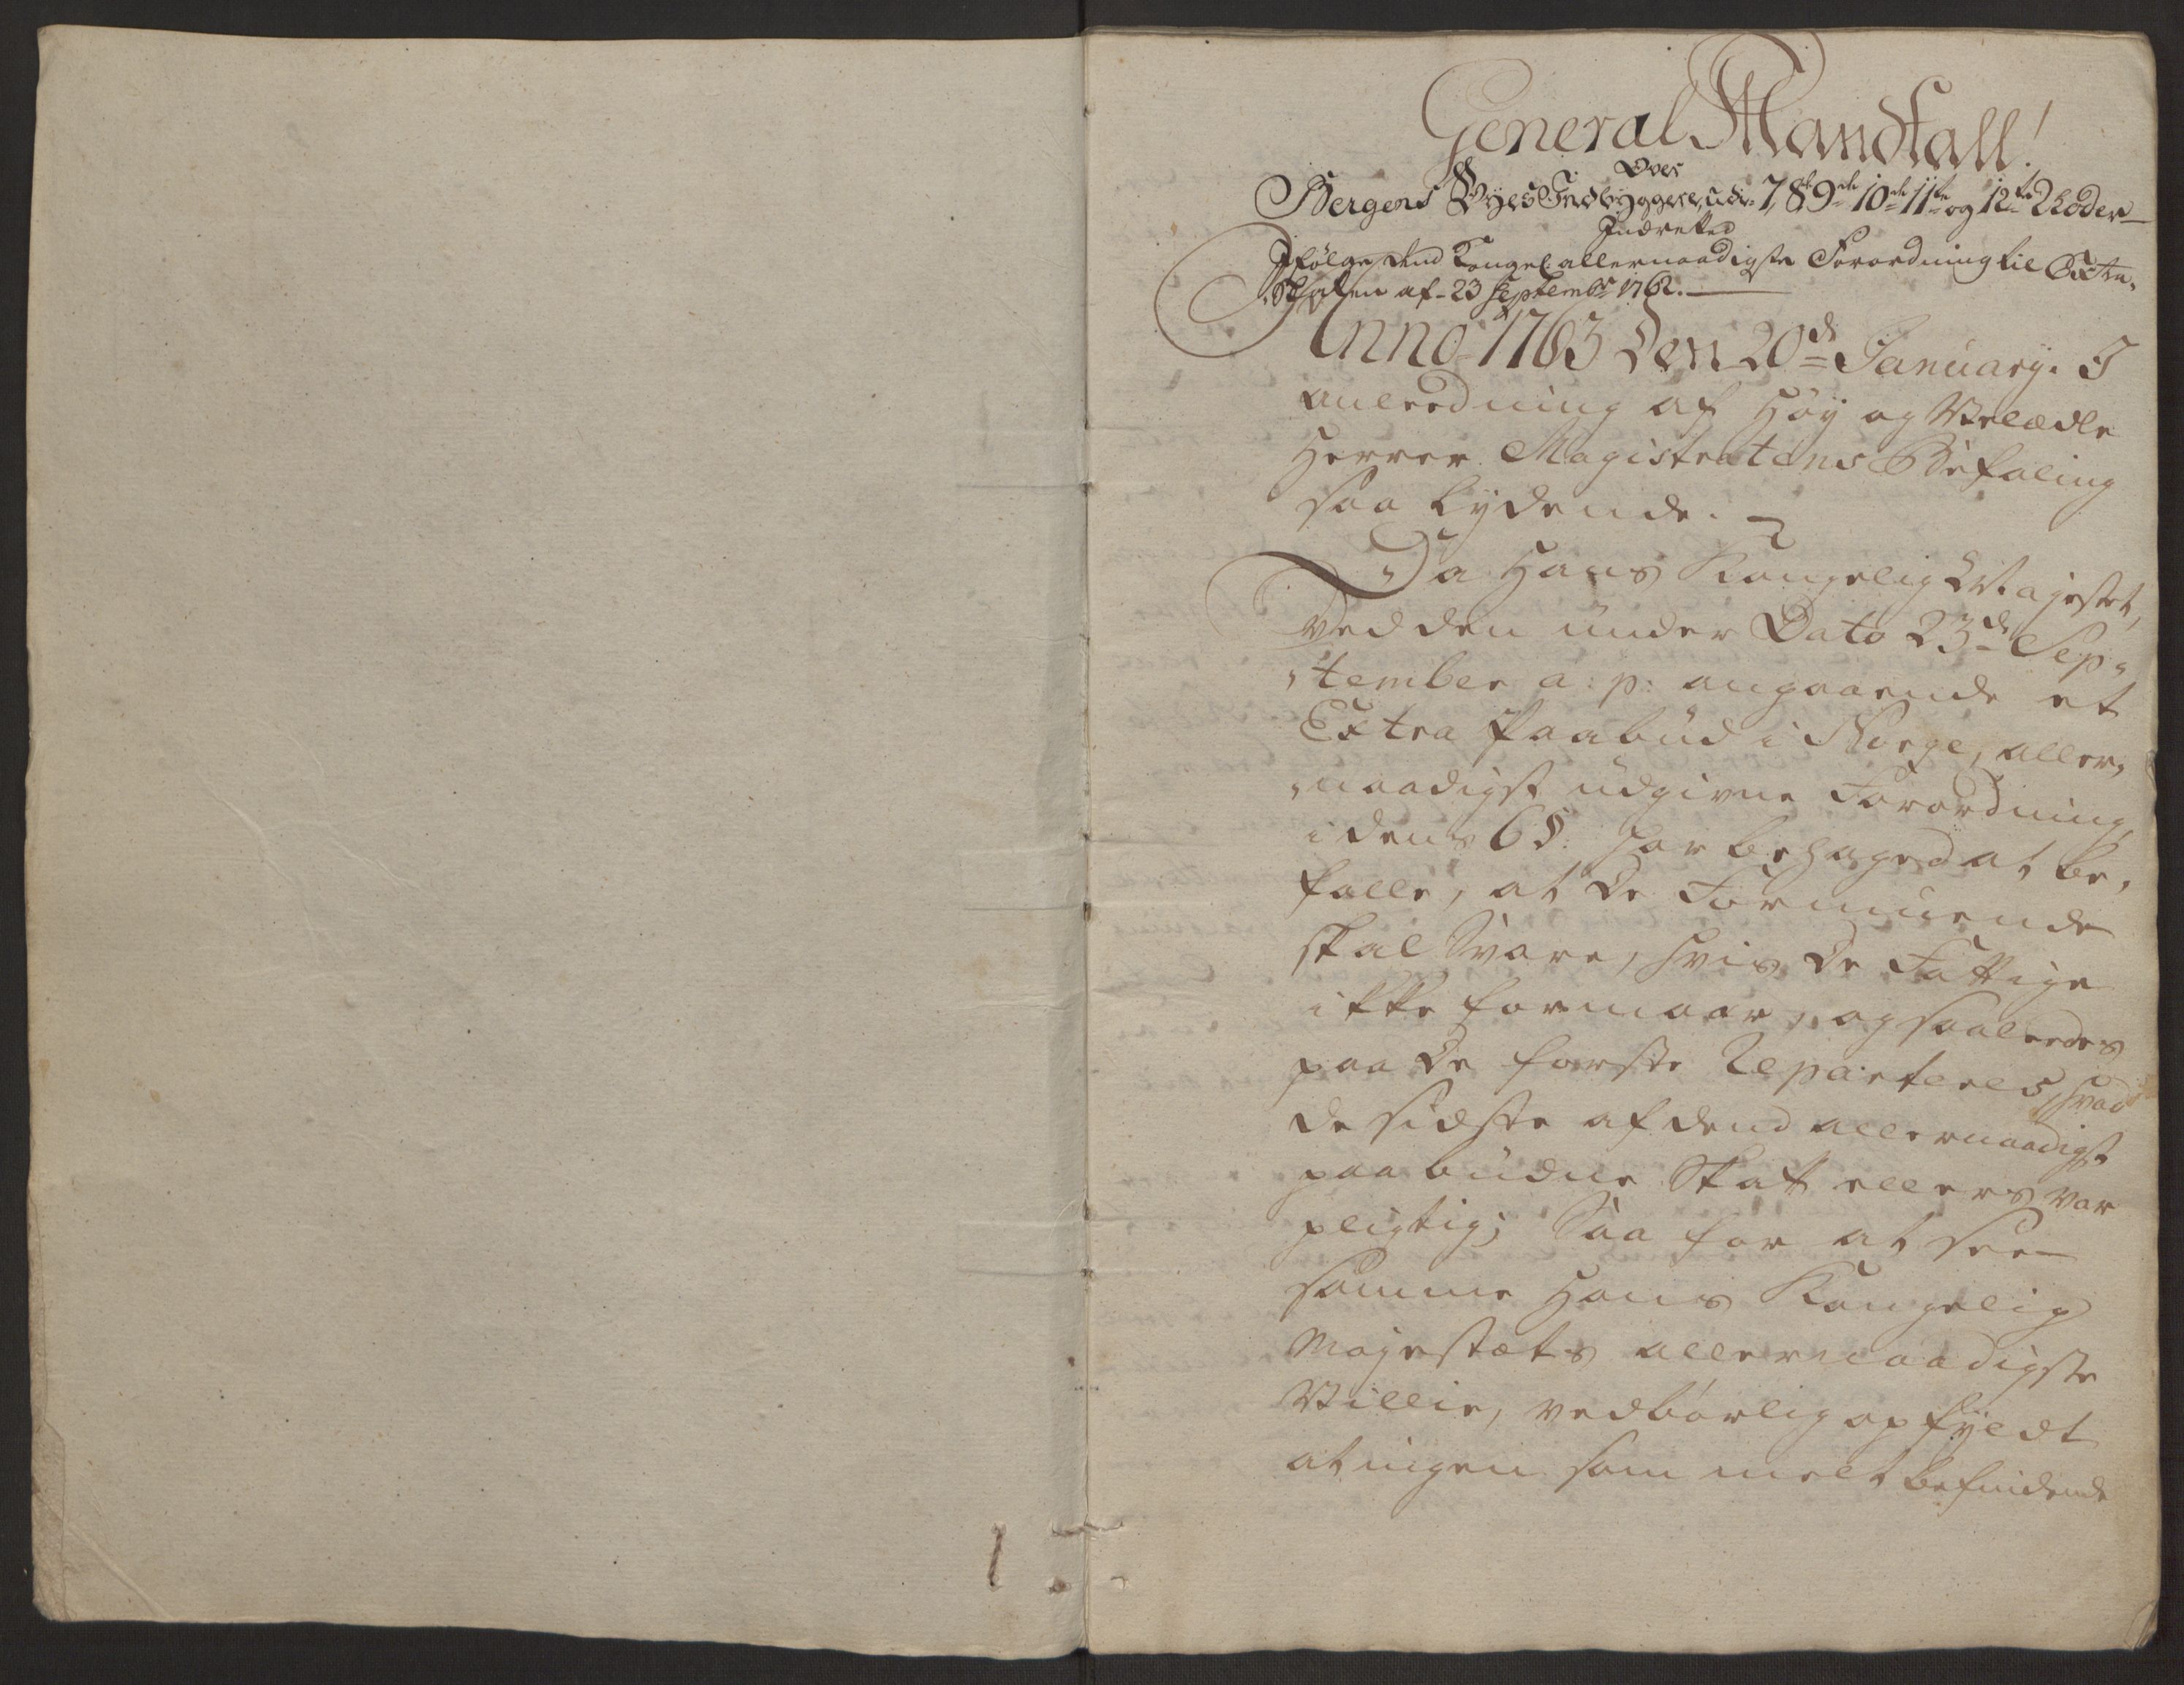 General Mandtall!
Over
Bergens Byes Indbyggere, udi 7, 8de 9de 10de 11te og 12te Roder
Indretted
Ifølge dend Kongel: allernaadigste Forordning til Extra
Skatten af 23 Septembr 1762.
Anno 1763 Den 20de January. I
anledning af Høy og Velædle
Herrer Magistratens Befaling
saa lydende.
Da Hans Kongelig Majestet,
ved den under Dato 23de Sep-
tember a: p: angaaende et
Extra Paabud i Norge, aller-
naadigst udgivne Forordning,
i dens 6 §: har behaged at be-
falle, at De Formuende
skal Svare, hvis De Fattige
ikke formaar, og saaleedes
paa De første Reparteres, hvad
de sidste af dend allernaadigst
paabudne Skatt ellers var
pligtig; Saa for at see
samme Hans Kongelig
Majestæts allernaadigste
Villie, vedbørlig opfyldt
at ingen som melt befindende